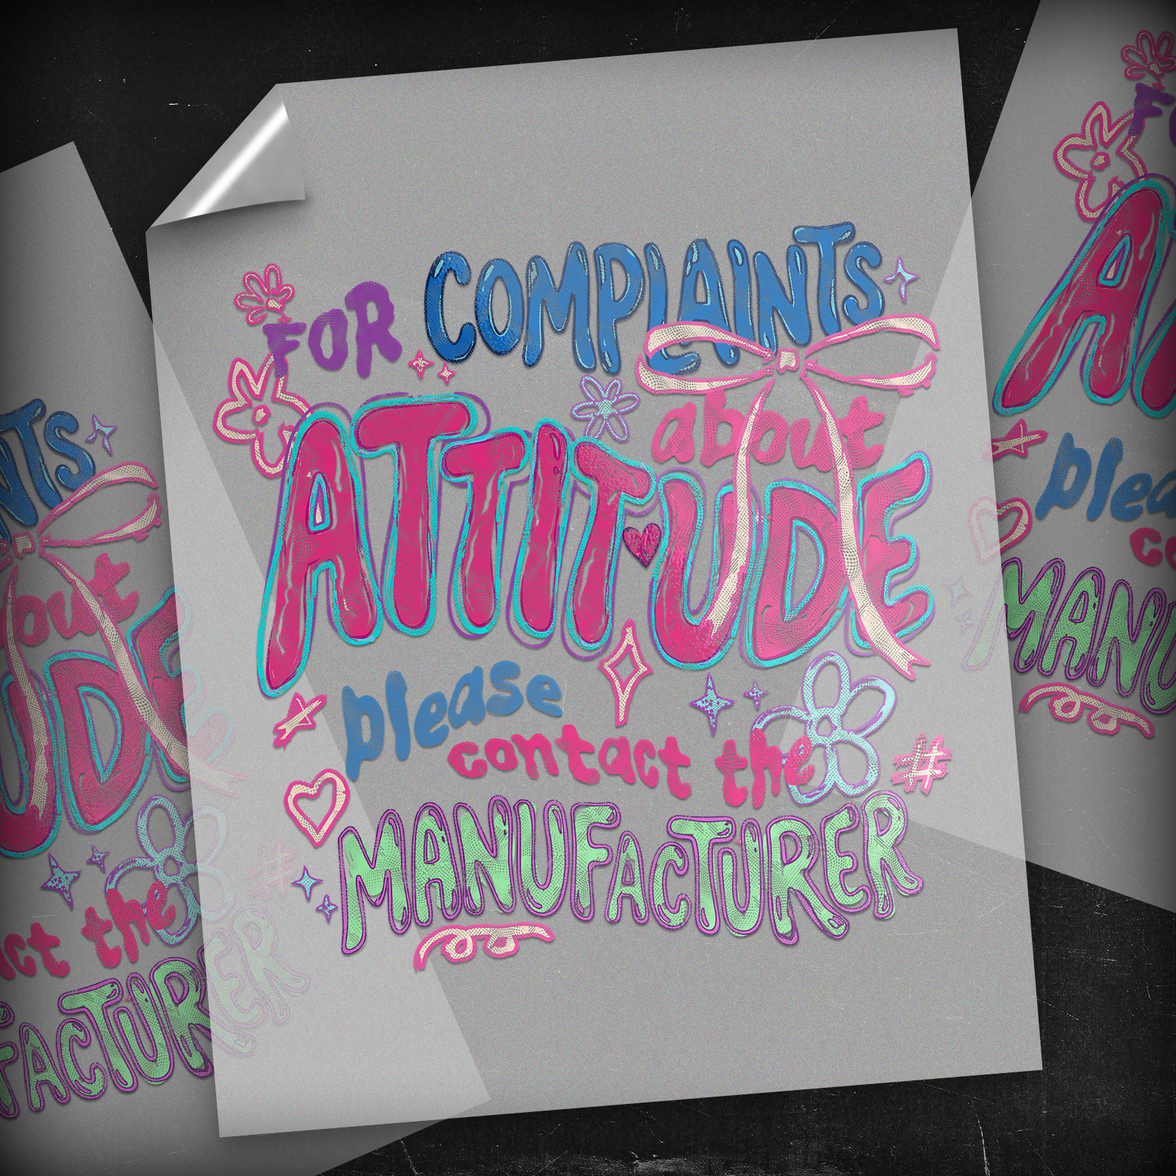 FOR COMPLAINTS
about
ATTITUDE
please
contact the
#
MANUFACTURER
NTS
out
UDE
act the
#
FACTURER
F
A
plea
co
MANU